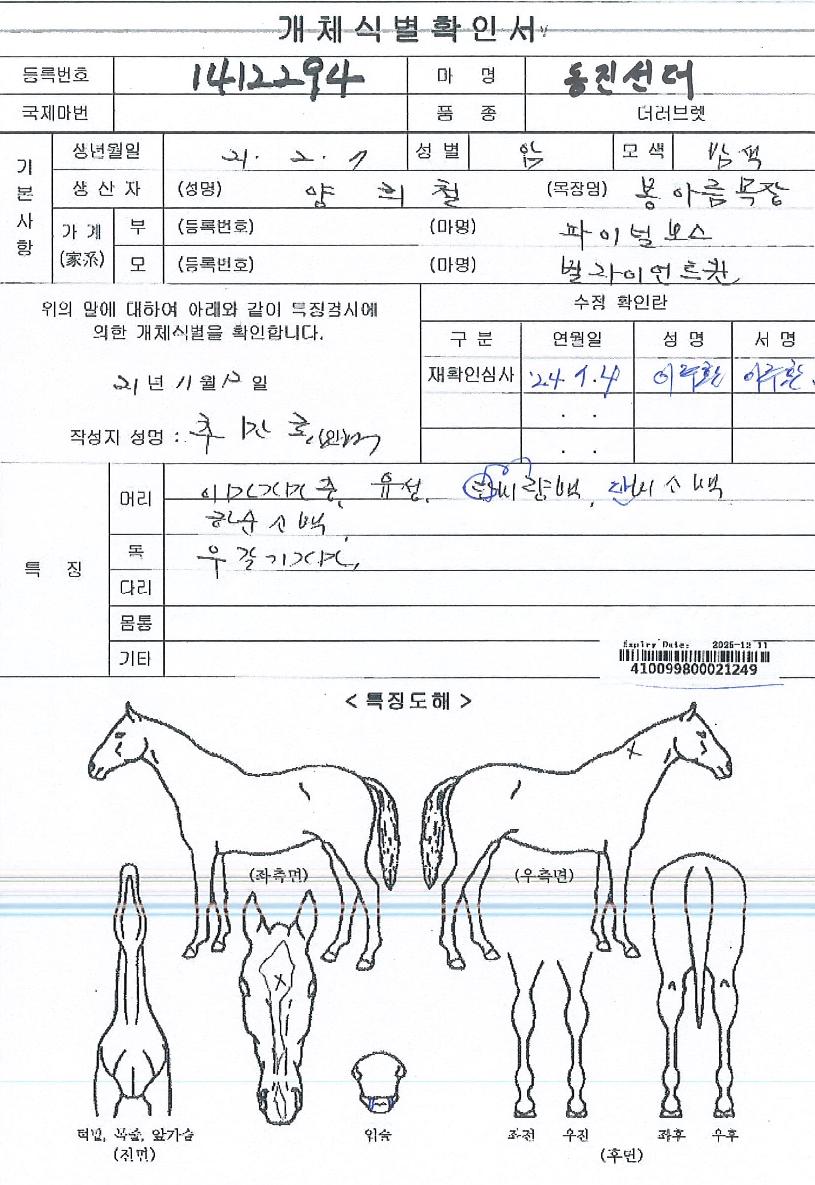 개체식별확인서
등록번호 1412294 마 명 동진선더
국제마번 품 종 더러브렛
기본사항
생년월일 21. 2. 7 성 별 암 모 색 밤색
생 산 자 (성명) 양 희 철 (목장명) 봉아름목장
가 계 (家系) 부 (등록번호) (마명) 파이널보스
모 (등록번호) (마명)
위의 말에 대하여 아래와 같이 특징검사에
의한 개체식별을 확인합니다.
21 년 11 월 12 일
작성자 성명 : 추
수정 확인란
구 분 연월일 성 명 서 명
재확인심사 '24. 1. 4 이주환 이주환
. .
. .
특 징
머리 유성, 소백
하순 소백
목
다리
몸통
기타
Expiry Date: 2025-12-11
410099800021249
< 특징도해 >
(좌측면) (우측면)
턱밑, 목줄, 앞가슴 입술 좌전 우전 좌후 우후
(전면) (후면)